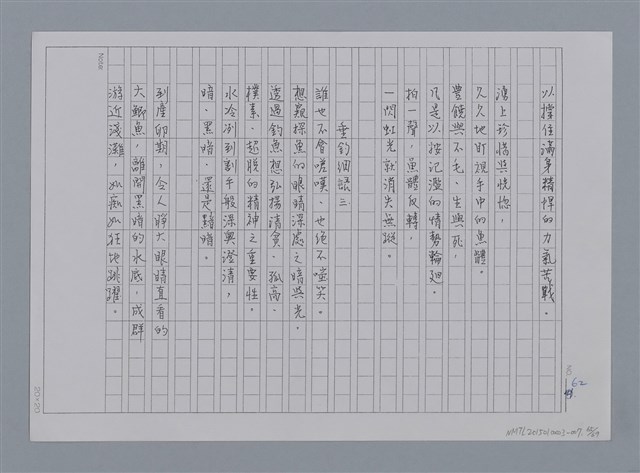 以撐住滿身精悍的力氣苦戰。
湧上珍惜與恍惚，
久久地盯視手中的魚體。
豐饒與不毛，生與死，
凡是以按記濫的情勢輪迴。
拍一聲，魚體反轉，
一閃虹光就消失無蹤。
垂釣細賬三
誰也不會嗟嘆，也絕不啞笑。
想窺探魚的眼睛深處之暗與光。
透過釣魚想弘揚清貧、孤高、
樸素、超脫的精神之重要性。
水冷冽到割手般深奧澄清，
暗、黑暗、還是黯暗。
到產卵期，令人睜大眼睛直看的
大鯽魚，離開黑暗的水底，成群
游近淺灘，如痴如狂地跳躍。
Note
20×20
8
62
NMTL2015010003-007